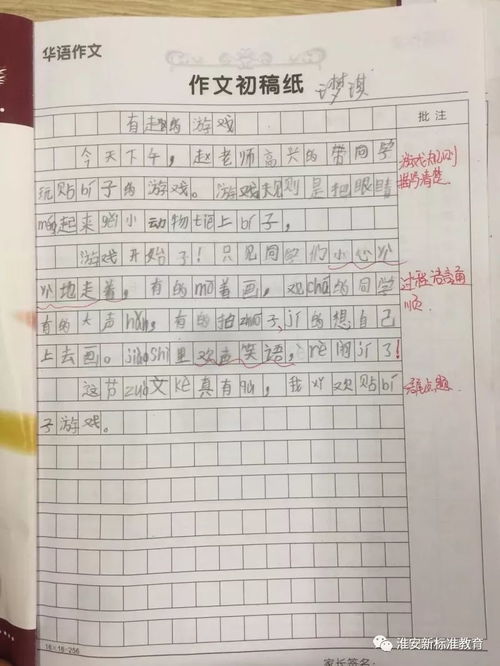 华语作文
作文初稿纸 梦淇
批注
有趣的游戏
今天下午,赵老师高兴的带同学
玩贴bí子的游戏。游戏规则是把眼睛
起来给小动物tiē上bí子。
游戏规则
描写清楚。
游戏开始了!只见同学们小心
地走着。有的mō着画,观chá的同学
过程语言通
顺。
有的大声hǎn,有的拍zhuō子,jí的想自己
上去画。jiàoshì里欢声笑语,rè闹jí了!
这节zuò文kè真有qù,我xǐ欢贴bí
子游戏。
结尾点题.
16×16=256
家长签名:
淮安新标准教育